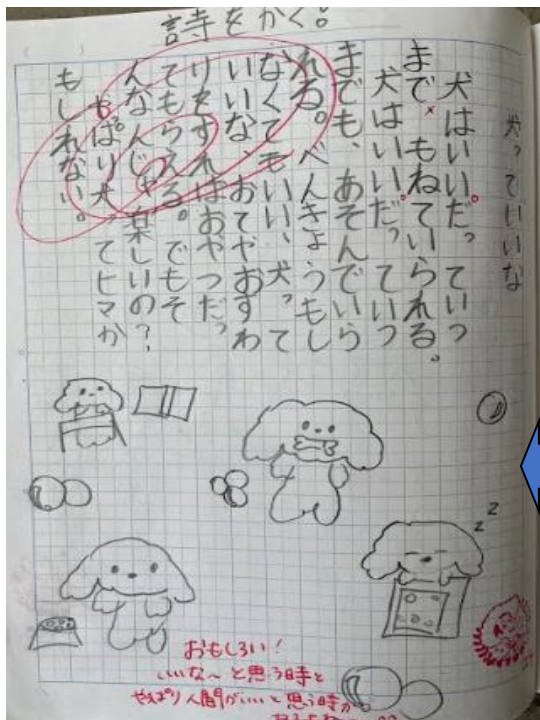 詩をかく。
犬っていいな
犬はいい。だっていつ
まで もねていられる。
犬はいい。だっていつ
までも、あそんでいら
れる。べんきょうもし
なくてもいい、犬って
いいな、おてやおすわ
りをすればおやつだっ
てもらえる。でもそ
んなんじゃ楽しいの?
やっぱり犬ってヒマか
もしれない。
z z
おもしろい!
いいな〜と思う時と
やっぱり人間がいいと思う時が